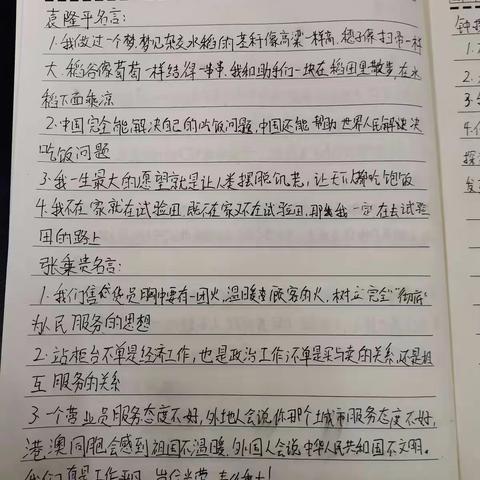 袁隆平名言:
1.我做过一个梦,梦见杂交水稻的茎秆像高粱一样高,穗子像扫帚一样
大,稻谷像葡萄一样结得一串串,我和助手们一块在稻田里散步,在水
稻下面乘凉
2.中国完全能解决自己的吃饭问题,中国还能帮助世界人民解决
吃饭问题
3.我一生最大的愿望就是让人类摆脱饥荒,让天下人都吃饱饭
4.我不在家就在试验田,既不在家又不在试验田,那我一定在去试验
田的路上
张秉贵名言:
1.我们售货员胸中要有一团火,温暖顾客的火,树立完全"彻底"
为人民服务的思想
2.站柜台不单是经济工作,也是政治工作;不单是买与卖的关系,还是相
互服务的关系
3.一个营业员服务态度不好,外地人会说你那个城市服务态度不好,
港澳同胞会感到祖国不温暖,外国人会说中华人民共和国不文明。
钟
1.
2.
3.
4.